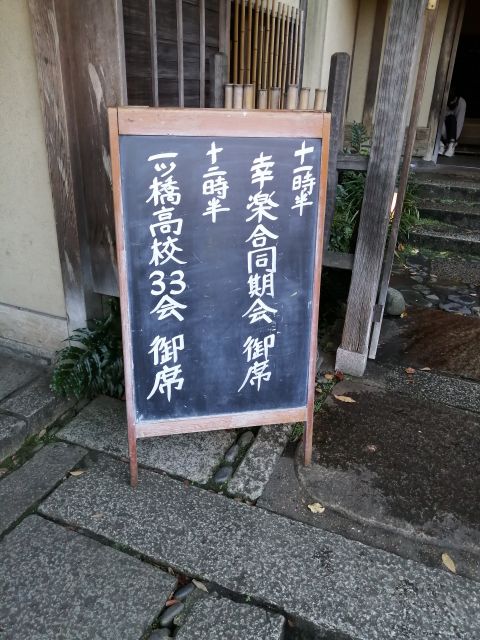 十一時半
幸楽合同期会 御席
十二時半
一ッ橋高校33会 御席